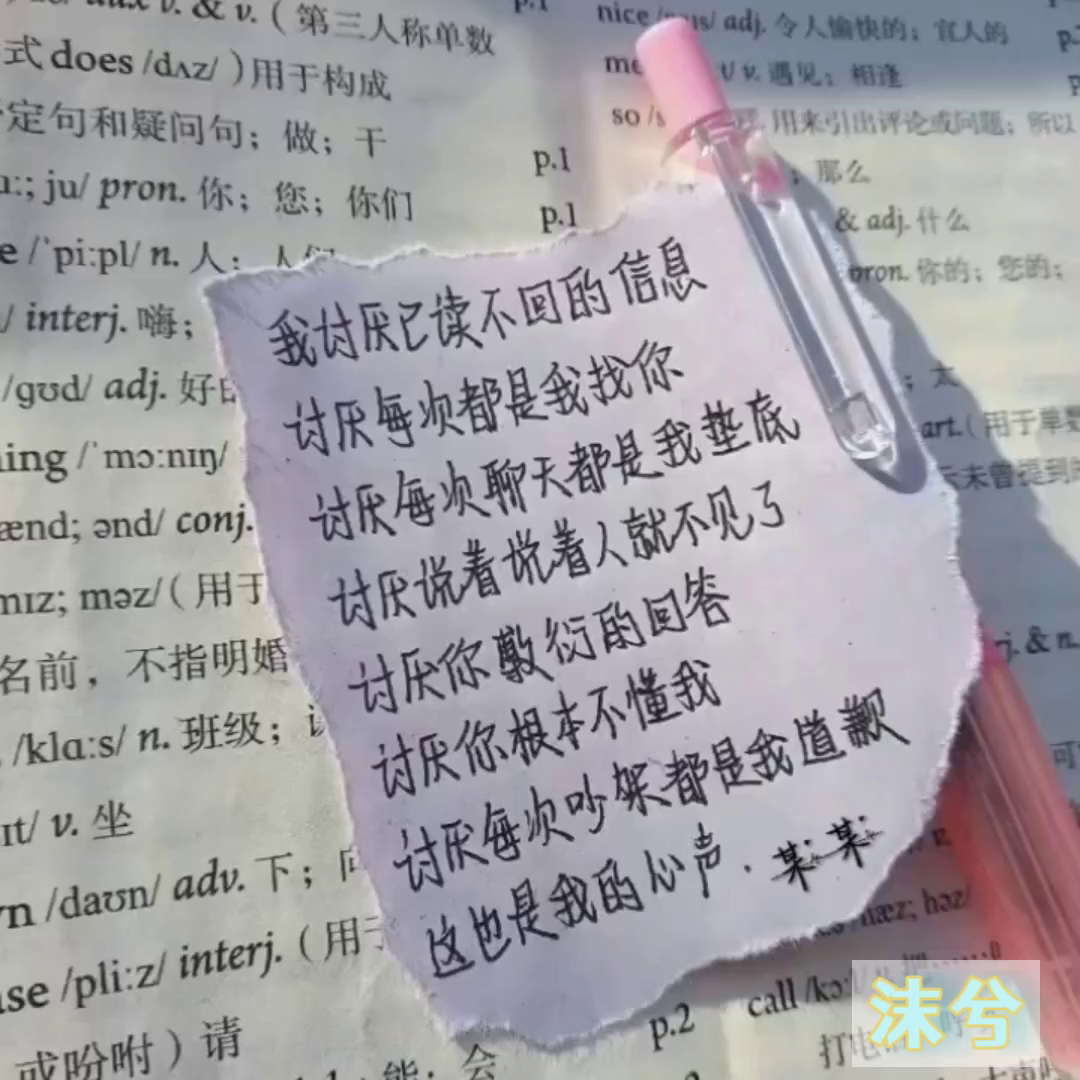 aux v. & v.（第三人称单数
式 does /dʌz/）用于构成
定句和疑问句；做；干
ju/ pron. 你；您；你们
p.1
p.1
/ˈpiːpl/ n. 人；人们
interj. 嗨；
/gʊd/ adj. 好
/ˈmɔːnɪŋ/
ænd; ənd/ conj.
mɪz; məz/（用于
名前，不指明婚
/klɑːs/ n. 班级；
ɪt/ v. 坐
/daʊn/ adv. 下；向
/pliːz/ interj.（用于
或吩咐）请
能；会
p.1
nice adj. 令人愉快的；宜人的
v. 遇见；相逢
so 用来引出评论或问题；所以
；那么
& adj. 什么
pron. 你的；您的；
art.（用于单数
示未曾提到的
j. & n.
hæz; həz/
p.2
call /kɔːl/
打电
我讨厌已读不回的信息
讨厌每次都是我找你
讨厌每次聊天都是我垫底
讨厌说着说着人就不见了
讨厌你敷衍的回答
讨厌你根本不懂我
讨厌每次吵架都是我道歉
这也是我的心声．某某
沫兮